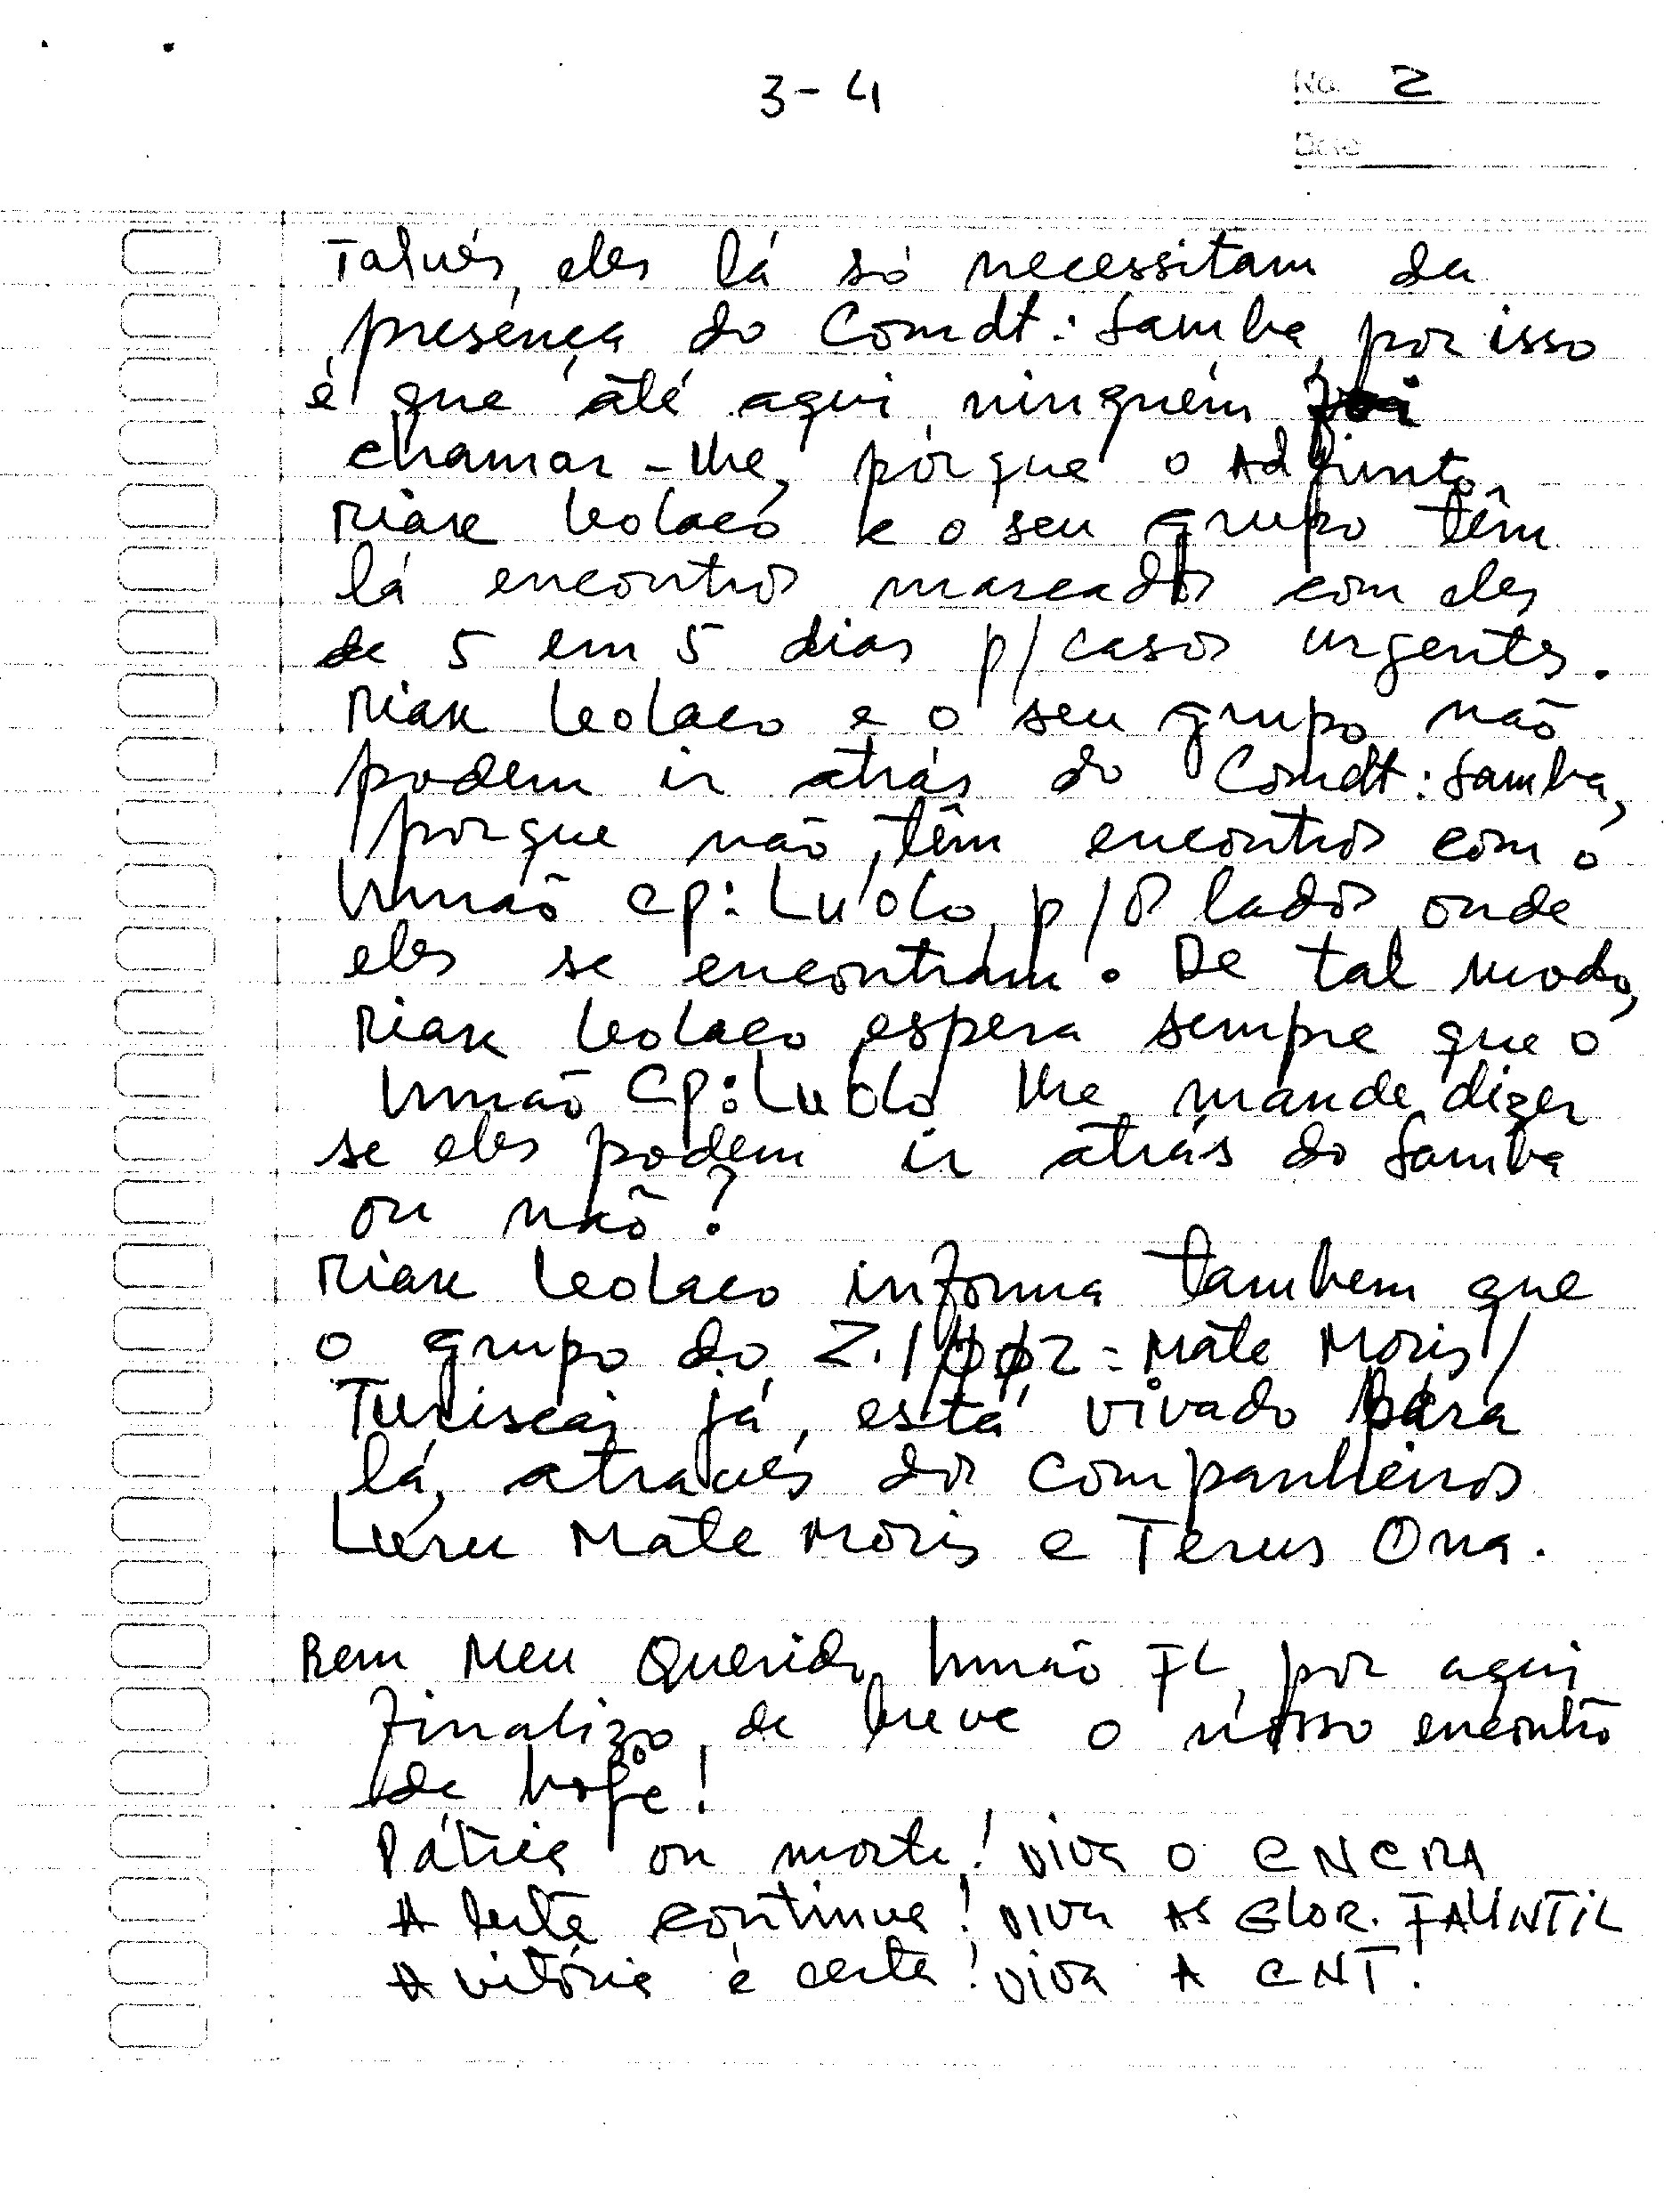 3-4
No. 2
Date
Talvés, eles lá só necessitam da
presença do Comdt: Samba, por isso
é que até aqui ninguém foi
chamar-lhe, porque o Adjunto
Riak Leolaco e o seu grupo têm
lá encontros marcados com eles
de 5 em 5 dias p/ casos urgentes.
Riak Leolaco e o seu grupo não
podem ir atrás do Comdt: Samba,
porque não têm encontros com o
Irmão CP: Lu'olo, p/os lados onde
eles se encontram. De tal modo,
Riak Leolaco espera sempre que o
Irmão CP: Lu'olo lhe mande dizer
se eles podem ir atrás do Samba
ou não?
Riak Leolaco informa tambem que
o grupo do Z.1φφ2 = Mate Moris/
Turiscai já está virado para
lá, atravués dos companheiros
Leru Mate Moris e Terus Ona.
Bem Meu Querido Irmão FL, por aqui
finalizo de breve o nosso encontro
de hoje!
Pátria ou morte! Viva o CNCRA
A luta continua! Viva AS GLOR. FALINTIL
A vitória é certa! Viva A CNT!